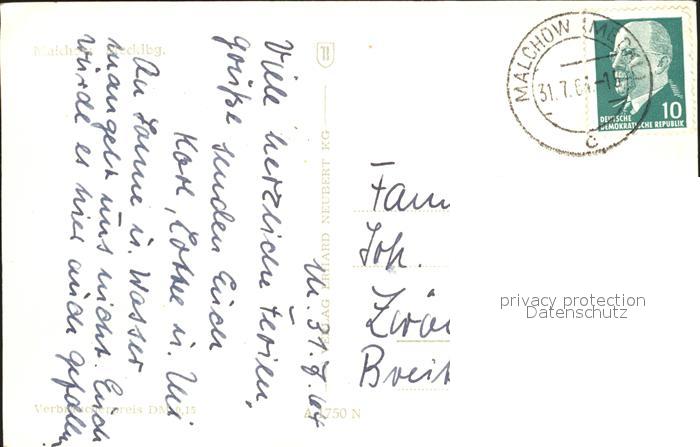 Malchow Mecklbg.
M. 31.7.64
Viele herzliche Ferien-
grüße senden Euch
Karl, Lotte u. Uli
An Sonne u. Wasser
mangelt uns nicht. Euch
würde es hier auch gefallen
VERLAG ERHARD NEUBERT KG
Verbraucherpreis DM 0,15
A 1750 N
MALCHOW (MECKL)
31.7.64-1
c
10
DEUTSCHE
DEMOKRATISCHE REPUBLIK
Fam
Joh.
Zwön
Breit
privacy protection
Datenschutz